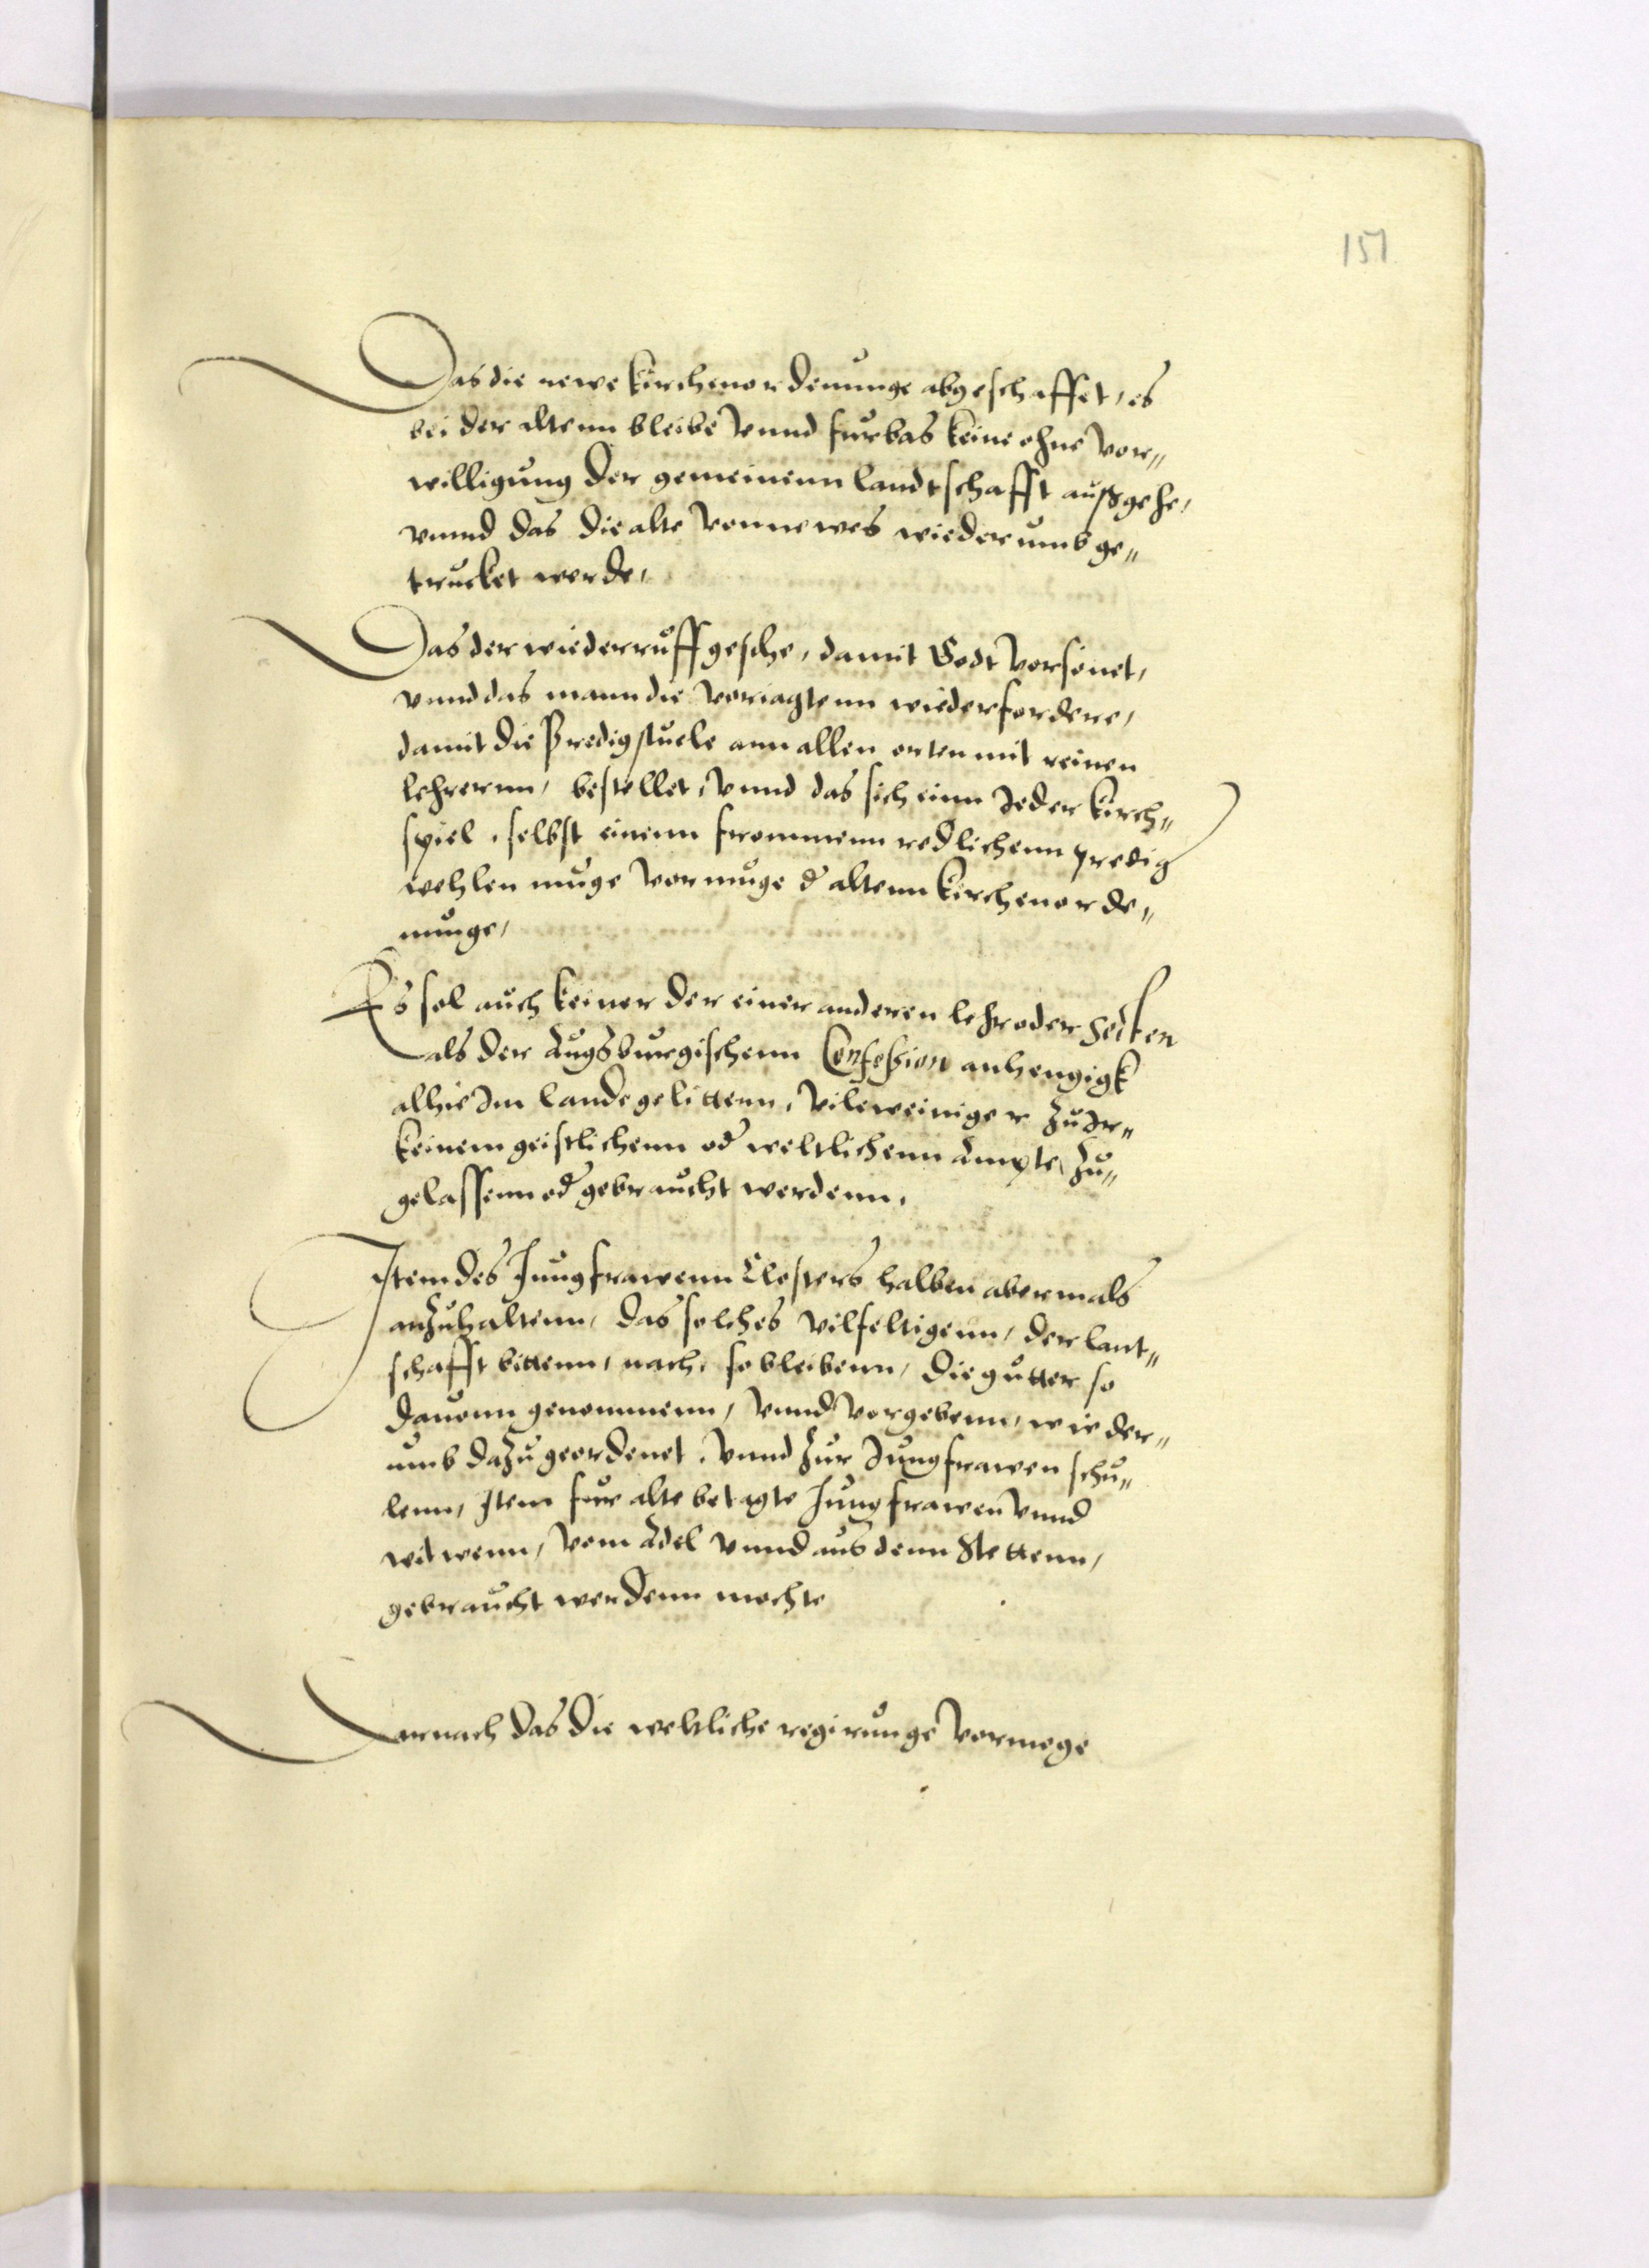 151
Das die newe Kirchenordenunge abgeschaffet, es
bei der altenn bleibe vnnd furbas keine ohne vor„
willigung der gemeinenn landtschafft außgehe,
vnnd das die alte vonn newes wiederumb ge„
trucket werde,
Das der wiederruff geschehe, damit Godt vorsönet,
vnnd das mann die voriagtenn wiederfordere,
damit die Predigstuele ann allen orten mit reinen
lehrernn, bestellet, vnnd das sich einn Jeder Kirch„
spiel, selbst einenn frommenn redlichenn predig
wehlen muge vormuge d' altenn Kirchenorde„
nunge,
Es sol auch keiner der einer anderen lehr oder Secten
als der Augsburgischenn Confession anhengigk
alhie Im lande gelittenn, vile weiniger zu Ir„
keinem geistlichenn od' weltlichenn Ampte, zu„
gelassenn od' gebraucht werdenn,
Item des Jungfrawenn Closters halben abermals
anzuhaltenn, das solches vilfeltigenn, der lant„
schafft bittenn, nach, so bleibenn, die gutter so
dauonn genommenn, vnnd vorgebenn, wieder„
umb dazu geordenet, vnnd zur Jungfrawen schu„
lenn, Item fur alte betagte Jungfrawen vnnd
witwenn, vom Adel vnnd aus denn Stettenn,
gebraucht werdenn mochte
Darnach das die weltliche regirunge vormoge